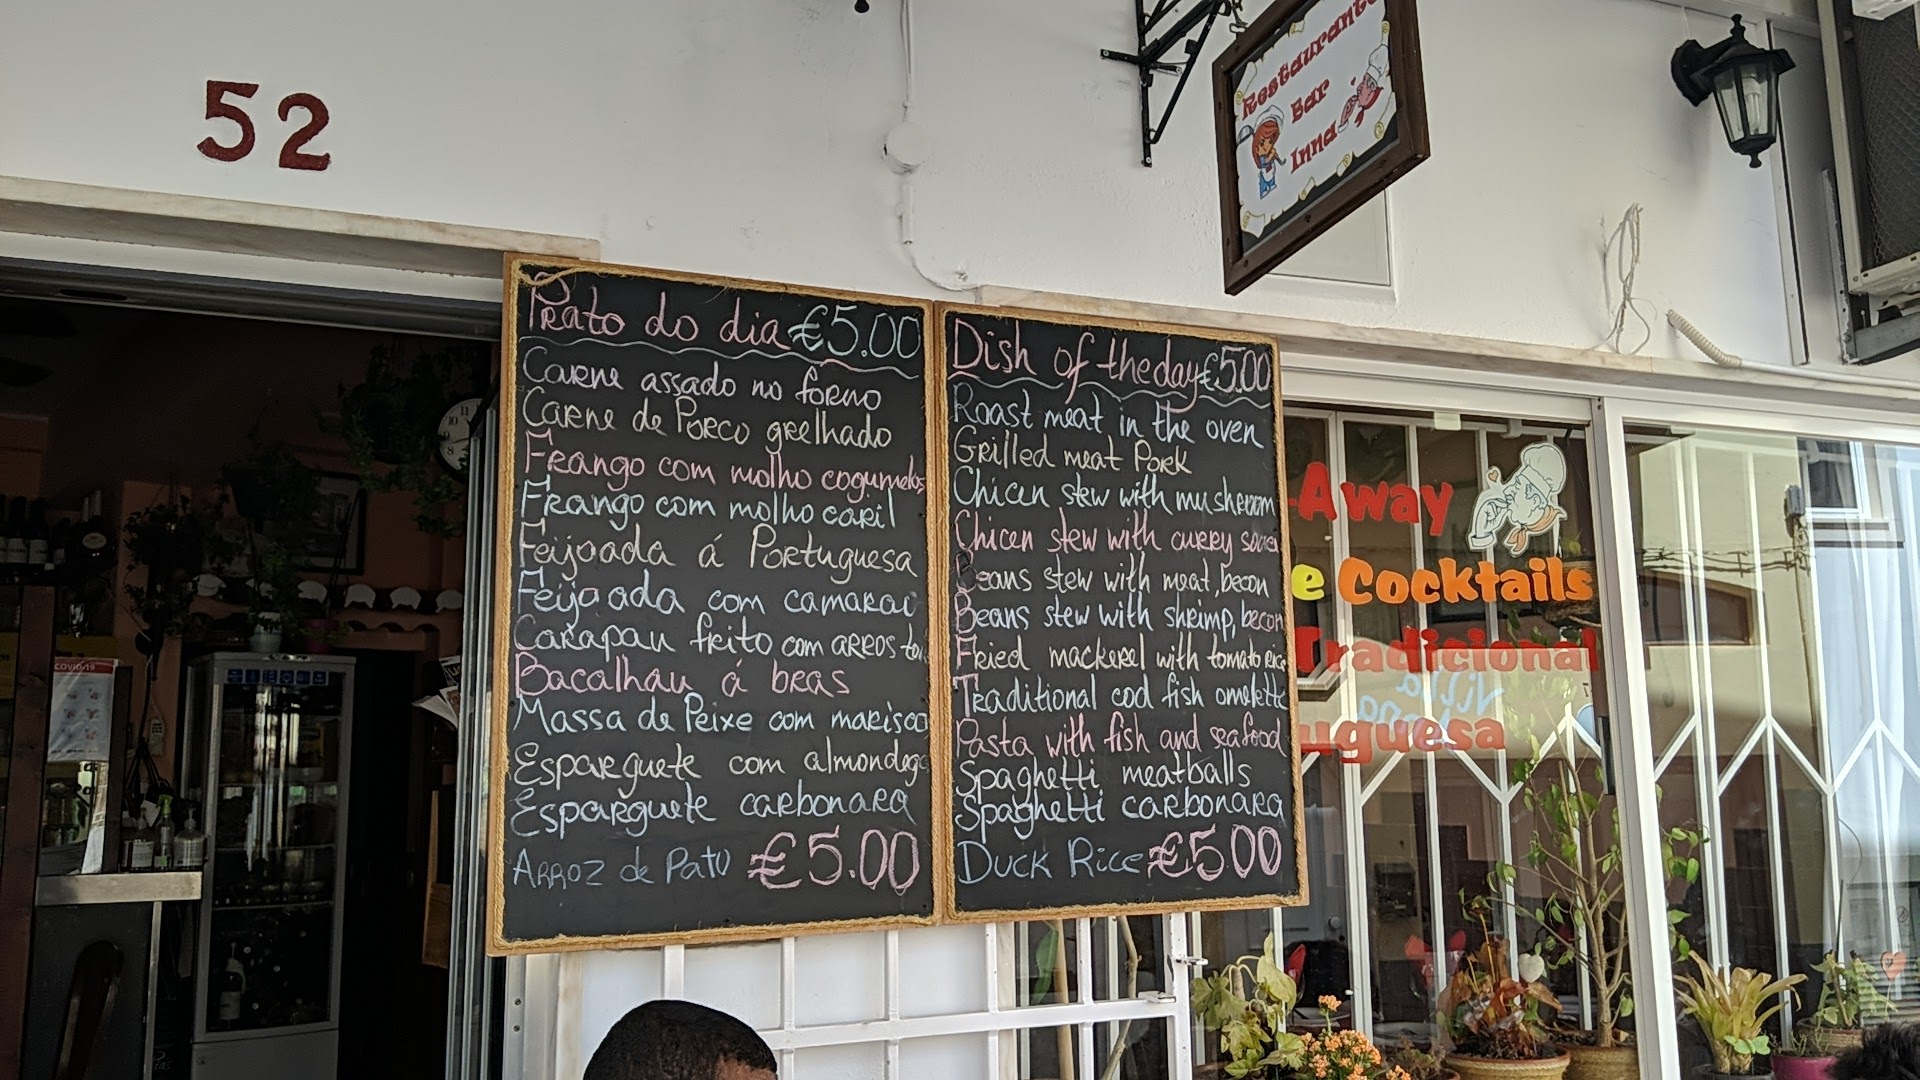 52
Restaurante
Bar
Inna
Prato do dia €5.00
Carne assado no forno
Carne de Porco grelhado
Frango com molho cogumelos
Frango com molho caril
Feijoada á Portuguesa
Feijoada com camarai
Carapau frito com arros
Bacalhau á bras
Massa de Peixe com marisco
Esparguete com almondega
Esparguete carbonara
Arroz de Pato €5.00
Dish of the day €5.00
Roast meat in the oven
Grilled meat Pork
Chicen stew with mushroom
Chicen stew with curry
Beans stew with meat, becon
Beans stew with shrimp, becon
Fried mackerel with tomato rice
Traditional cod fish omelette
Pasta with fish and seafood
Spaghetti meatballs
Spaghetti carbonara
Duck Rice €5.00
-Away
e Cocktails
Tradicional
uguesa
COVID-19